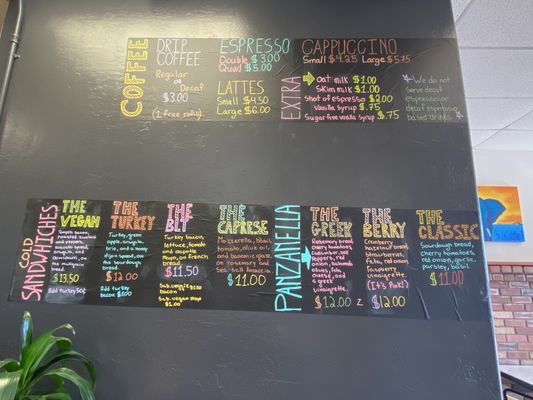 COFFEE
DRIP
COFFEE
Regular
or
Decaf
$3.00
(1 free refill)
ESPRESSO
Double $3.00
Quad $5.00
LATTES
Small $4.50
Large $6.00
CAPPUCCINO
Small $4.25 Large $5.75
EXTRA
Oat milk $1.00
Skim milk $1.00
Shot of espresso $2.00
Vanilla syrup $.75
Sugar free vanilla syrup $.75
We do not
Serve decaf
espresso or
decaf espresso
based drinks
COLD
SANDWICHES
THE
VEGAN
and peppers,
$13.50
Add turkey $2.00
THE
TURKEY
Turkey, green
apple, arugula,
brie, and a honey
dijon spread
on sourdough
bread.
$12.00
Add turkey
bacon $2.00
THE
BLT
Turkey bacon,
lettuce, tomato
and chipotle
mayo on french
bread
$11.50
Sub veggie
bacon
Sub vegan mayo
$1.00
THE
CAPRESE
Mozzarella, basil,
tomato, olive oil
and balsamic glaze
on rosemary and
sea salt focaccia
$11.00
PANZANELLA
THE
GREEK
Rosemary bread
cherry tomatoes,
cucumber, bell
peppers, red
onion, kalamata
olives, feta
cheese, and
a greek
vinaigrette
$12.00
THE
BERRY
Cranberry
hazelnut bread
strawberries,
feta, red onion
raspberry
vinaigrette
(It's Pink!)
$12.00
THE
CLASSIC
Sourdough bread,
Cherry tomatoes
red onion, garlic,
parsley, basil
$11.00